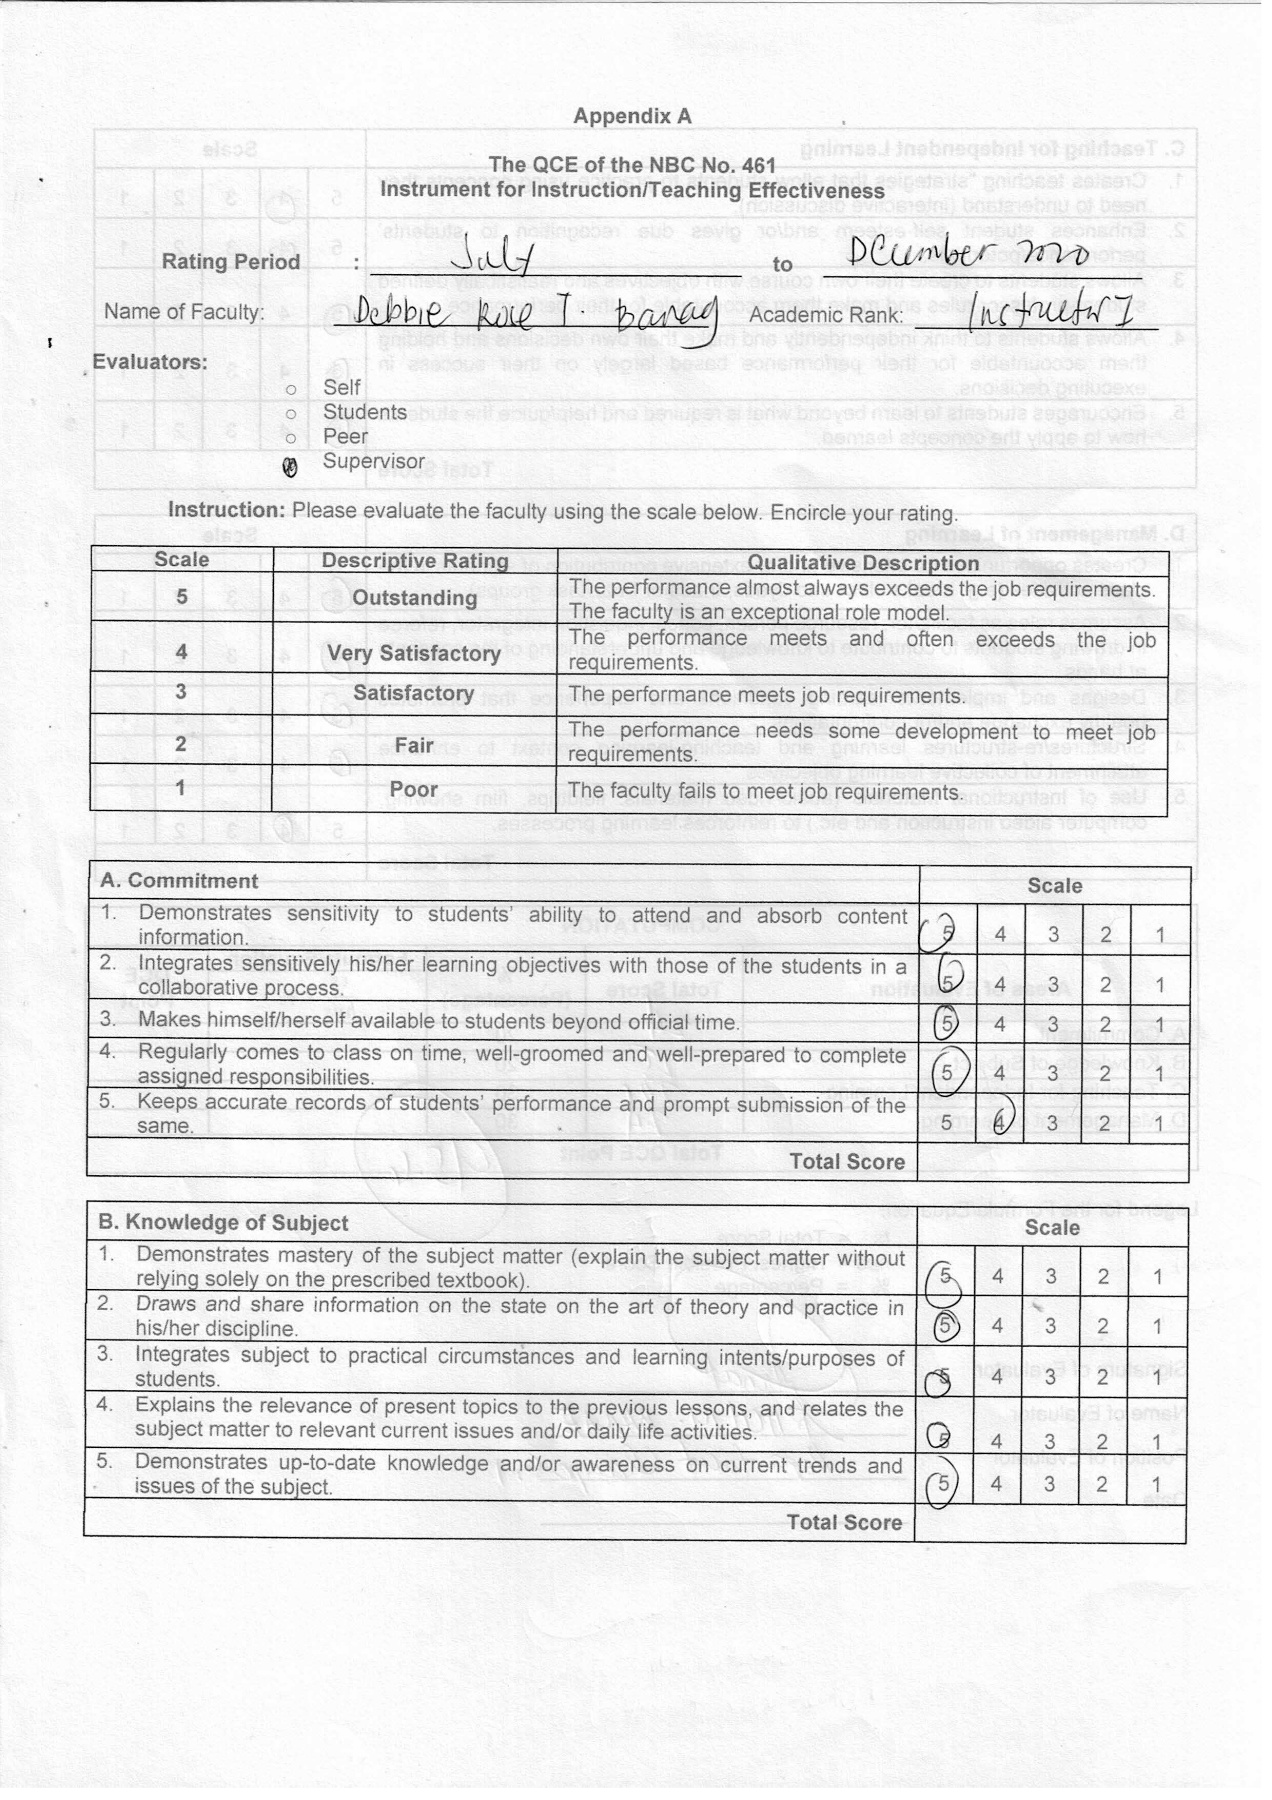 Appendix A
The QCE of the NBC No. 461
Instrument for Instruction/Teaching Effectiveness
Rating Period : July to December 2020
Name of Faculty: Debbie Rose T. Banag Academic Rank: Instructor I
Evaluators:
○ Self
○ Students
○ Peer
Supervisor
Instruction: Please evaluate the faculty using the scale below. Encircle your rating.
Scale Descriptive Rating Qualitative Description
5 Outstanding The performance almost always exceeds the job requirements.
The faculty is an exceptional role model.
4 Very Satisfactory The performance meets and often exceeds the job
requirements.
3 Satisfactory The performance meets job requirements.
2 Fair The performance needs some development to meet job
requirements.
1 Poor The faculty fails to meet job requirements.
A. Commitment Scale
1. Demonstrates sensitivity to students' ability to attend and absorb content
information. 5 4 3 2 1
2. Integrates sensitively his/her learning objectives with those of the students in a
collaborative process. 5 4 3 2 1
3. Makes himself/herself available to students beyond official time. 5 4 3 2 1
4. Regularly comes to class on time, well-groomed and well-prepared to complete
assigned responsibilities. 5 4 3 2 1
5. Keeps accurate records of students' performance and prompt submission of the
same. 5 4 3 2 1
Total Score
B. Knowledge of Subject Scale
1. Demonstrates mastery of the subject matter (explain the subject matter without
relying solely on the prescribed textbook). 5 4 3 2 1
2. Draws and share information on the state on the art of theory and practice in
his/her discipline. 5 4 3 2 1
3. Integrates subject to practical circumstances and learning intents/purposes of
students. 5 4 3 2 1
4. Explains the relevance of present topics to the previous lessons, and relates the
subject matter to relevant current issues and/or daily life activities. 5 4 3 2 1
5. Demonstrates up-to-date knowledge and/or awareness on current trends and
issues of the subject. 5 4 3 2 1
Total Score